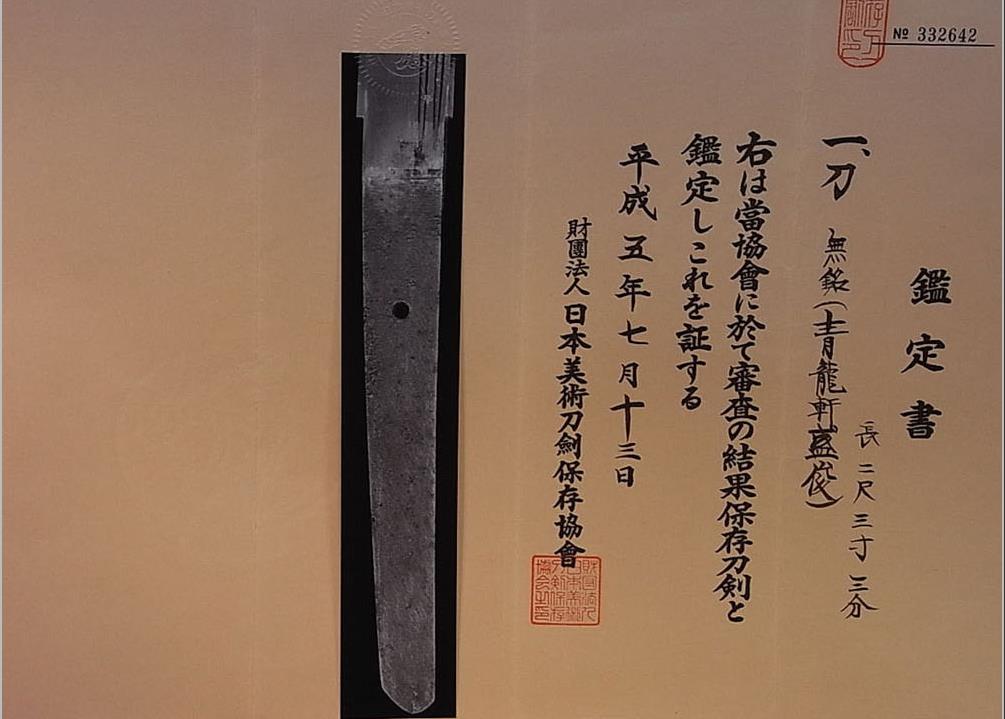 № 332642
鑑定書
一、刀 無銘(青龍軒盛俊)
長二尺三寸三分
右は當協會に於て審査の結果保存刀剣と
鑑定しこれを証する
平成五年七月十三日
財團法人日本美術刀劍保存協會